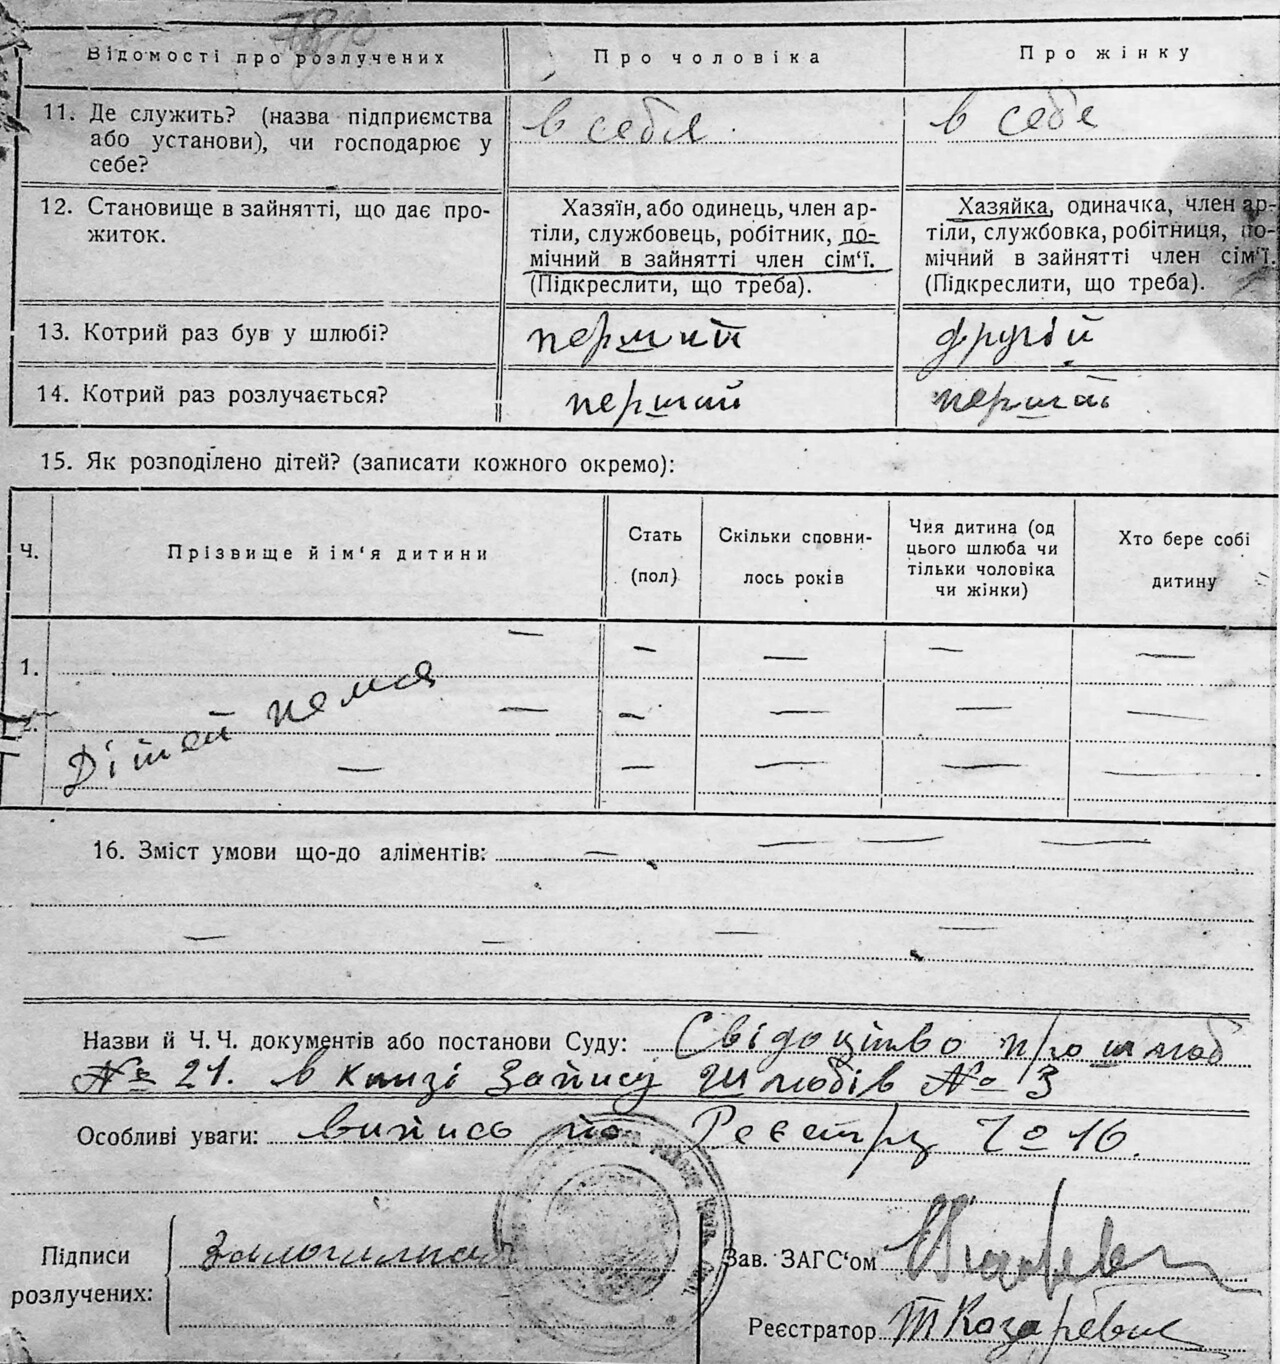 Відомості про розлучених
Про чоловіка
Про жінку
11. Де служить? (назва підприємства
або установи), чи господарює у
себе?
в себя
в себе
12. Становище в зайнятті, що дає про-
житок.
Хазяїн, або одинець, член ар-
тіли, службовець, робітник, по-
мічний в зайнятті член сім‘ї.
(Підкреслити, що треба).
Хазяйка, одиначка, член ар-
тіли, службовка, робітниця, по-
мічний в зайнятті член сім‘ї.
(Підкреслити, що треба).
13. Котрий раз був у шлюбі?
перший
другій
14. Котрий раз розлучається?
перший
перший
15. Як розподілено дітей? (записати кожного окремо):
Ч.
Прізвище й ім‘я дитини
Стать
(пол)
Скільки сповни-
лось років
Чия дитина (од
цього шлюба чи
тільки чоловіка
чи жінки)
Хто бере собі
дитину
1. — — — — —
2. — — — — —
Дітей нема
— — — — —
16. Зміст умови що-до аліментів: — — — —
— — — —
Назви й Ч. Ч. документів або постанови Суду: Свідоцтво про шлюб
№ 21. в книзі Запису шлюбів № 3
Особливі уваги: випись по Реєстру № 16.
Підписи
розлучених:
Зав. ЗАГС‘ом
Реєстратор